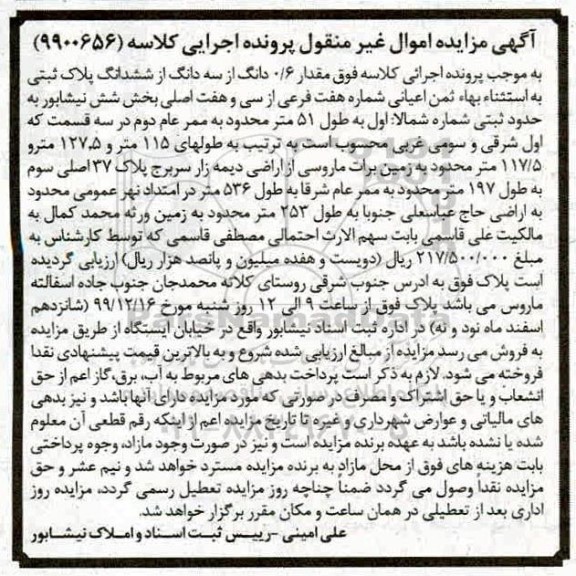 آگهی مزایده اموال غیر منقول پرونده اجرایی کلاسه (۹۹۰۰۶۵۶)
به موجب پرونده اجرائی کلاسه فوق مقدار ۰/۶ دانگ از سه دانگ از ششدانگ پلاک ثبتی
به استثناء بهاء ثمن اعیانی شماره هفت فرعی از سی و هفت اصلی بخش شش نیشابور به
حدود ثبتی شماره شمالا: اول به طول ۵۱ متر محدود به ممر عام دوم در سه قسمت که
اول شرقی و سومی غربی محسوب است به ترتیب به طولهای ۱۱۵ متر و ۱۲۷،۵ مترو
۱۱۷/۵ متر محدود به زمین برات ماروسی از اراضی دیمه زار سربرج پلاک ۳۷ اصلی سوم
به طول ۱۹۷ متر محدود به ممر عام شرقا به طول ۵۳۶ متر در امتداد نهر عمومی محدود
به اراضی حاج عباسعلی جنوبا به طول ۲۵۳ متر محدود به زمین ورثه محمد کمال به
مالکیت علی قاسمی بابت سهم الارث احتمالی مصطفی قاسمی که توسط کارشناس به
مبلغ ۲۱۷/۵۰۰/۰۰۰ ریال (دویست و هفده میلیون و پانصد هزار ریال) ارزیابی گردیده
است پلاک فوق به ادرس جنوب شرقی روستای کلاته محمدجان جنوب جاده اسفالته
ماروس می باشد پلاک فوق از ساعت ۹ الی ۱۲ روز شنبه مورخ ۹۹/۱۲/۱۶ (شانزدهم
اسفند ماه نود و نه) در اداره ثبت اسناد نیشابور واقع در خیابان ایستگاه از طریق مزایده
به فروش می رسد مزایده از مبالغ ارزیابی شده شروع و به بالاترین قیمت پیشنهادی نقدا
فروخته می شود. لازم به ذکر است پرداخت بدهی های مربوط به آب، برق،گاز اعم از حق
انشعاب و یا حق اشتراک و مصرف در صورتی که مورد مزایده دارای آنها باشد و نیز بدهی
های مالیاتی و عوارض شهرداری و غیره تا تاریخ مزایده اعم از اینکه رقم قطعی آن معلوم
شده یا نشده باشد به عهده برنده مزایده است و نیز در صورت وجود مازاد، وجوه پرداختی
بابت هزینه های فوق از محل مازاد به برنده مزایده مسترد خواهد شد و نیم عشر و حق
مزایده نقداً وصول می گردد ضمناً چناچه روز مزایده تعطیل رسمی گردد، مزایده روز
اداری بعد از تعطیلی در همان ساعت و مکان مقرر برگزار خواهد شد.
علی امینی -رییس ثبت اسناد و املاک نیشابور
ParsNamadData